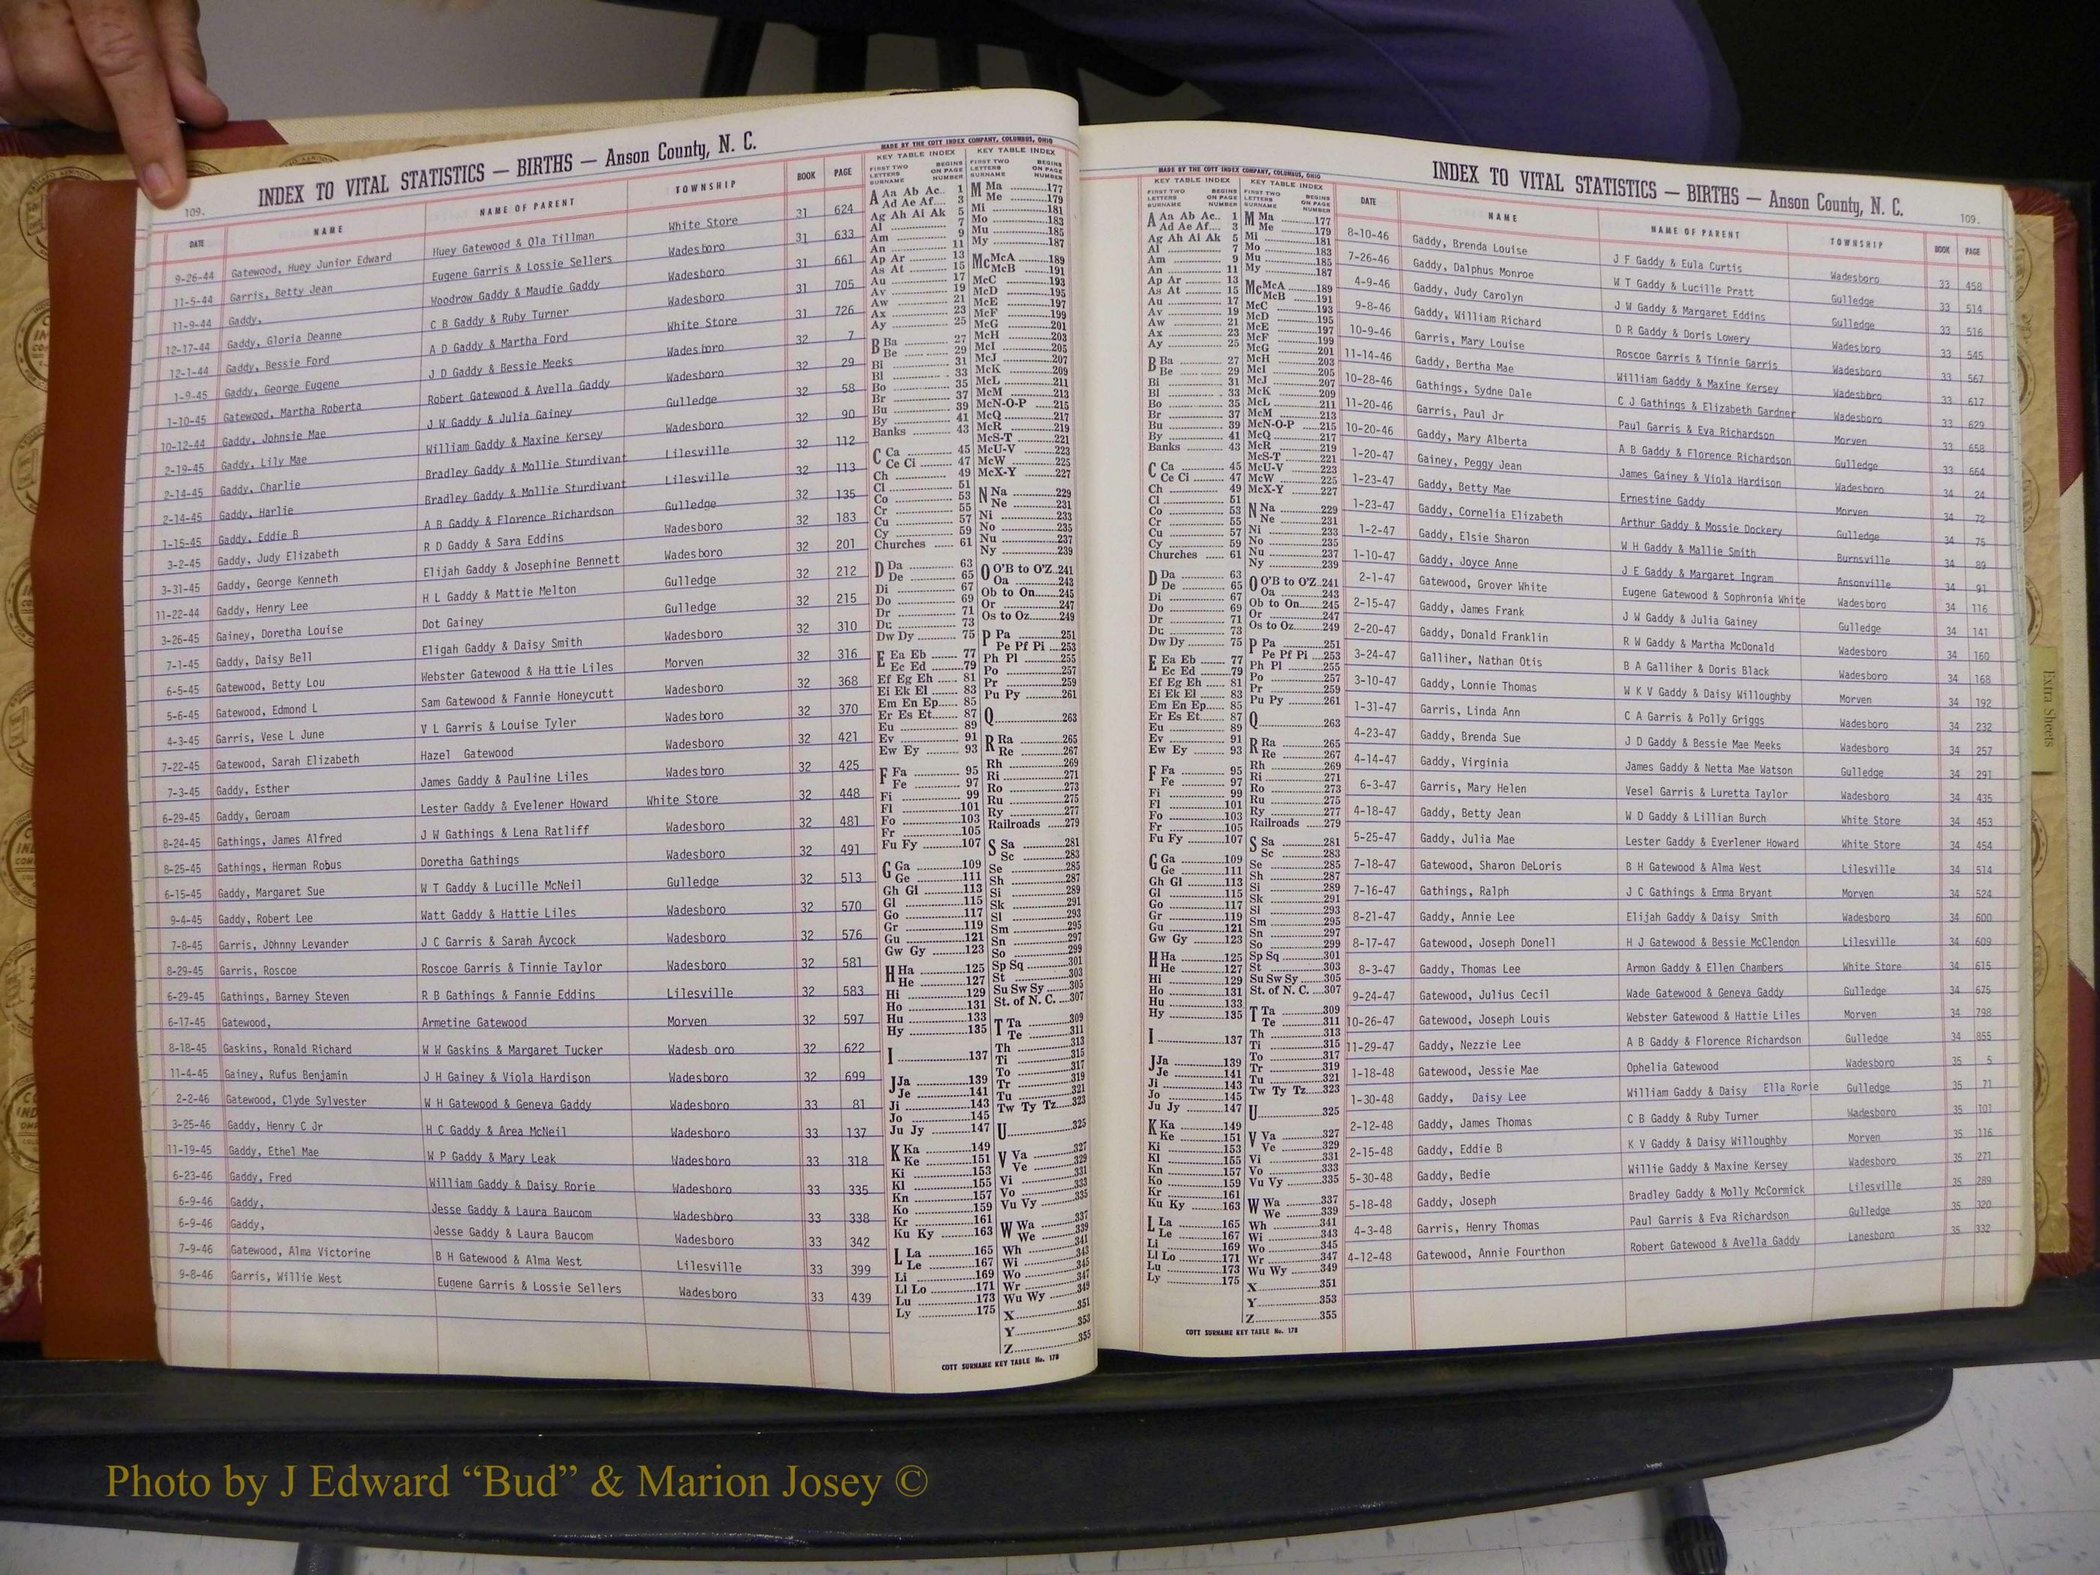 109.
INDEX TO VITAL STATISTICS — BIRTHS — Anson County, N. C.
DATE NAME NAME OF PARENT TOWNSHIP BOOK PAGE
9-26-44 Gatewood, Huey Junior Edward Huey Gatewood & Ola Tillman White Store 31 624
11-5-44 Garris, Betty Jean Eugene Garris & Lossie Sellers Wadesboro 31 633
11-9-44 Gaddy, Woodrow Gaddy & Maudie Gaddy Wadesboro 31 661
12-17-44 Gaddy, Gloria Deanne C B Gaddy & Ruby Turner Wadesboro 31 705
12-1-44 Gaddy, Bessie Ford A D Gaddy & Martha Ford White Store 31 726
1-9-45 Gaddy, George Eugene J D Gaddy & Bessie Meeks Wadesboro 32 7
1-10-45 Gatewood, Martha Roberta Robert Gatewood & Avella Gaddy Wadesboro 32 29
10-12-44 Gaddy, Johnsie Mae J W Gaddy & Julia Gainey Gulledge 32 58
2-19-45 Gaddy, Lily Mae William Gaddy & Maxine Kersey Wadesboro 32 90
2-14-45 Gaddy, Charlie Bradley Gaddy & Mollie Sturdivant Lilesville 32 112
2-14-45 Gaddy, Harlie Bradley Gaddy & Mollie Sturdivant Lilesville 32 113
1-15-45 Gaddy, Eddie B A B Gaddy & Florence Richardson Gulledge 32 135
3-2-45 Gaddy, Judy Elizabeth R D Gaddy & Sara Eddins Wadesboro 32 183
3-31-45 Gaddy, George Kenneth Elijah Gaddy & Josephine Bennett Wadesboro 32 201
11-22-44 Gaddy, Henry Lee H L Gaddy & Mattie Melton Gulledge 32 212
3-26-45 Gainey, Doretha Louise Dot Gainey Gulledge 32 215
7-1-45 Gaddy, Daisy Bell Eligah Gaddy & Daisy Smith Wadesboro 32 310
6-5-45 Gatewood, Betty Lou Webster Gatewood & Hattie Liles Morven 32 316
5-6-45 Gatewood, Edmond L Sam Gatewood & Fannie Honeycutt Wadesboro 32 368
4-3-45 Garris, Vese L June V L Garris & Louise Tyler Wadesboro 32 370
7-22-45 Gatewood, Sarah Elizabeth Hazel Gatewood Wadesboro 32 421
7-3-45 Gaddy, Esther James Gaddy & Pauline Liles Wadesboro 32 425
6-29-45 Gaddy, Geroam Lester Gaddy & Evelener Howard White Store 32 448
8-24-45 Gathings, James Alfred J W Gathings & Lena Ratliff Wadesboro 32 481
8-25-45 Gathings, Herman Robus Doretha Gathings Wadesboro 32 491
6-15-45 Gaddy, Margaret Sue W T Gaddy & Lucille McNeil Gulledge 32 513
9-4-45 Gaddy, Robert Lee Watt Gaddy & Hattie Liles Wadesboro 32 570
7-8-45 Garris, Johnny Levander J C Garris & Sarah Aycock Wadesboro 32 576
8-29-45 Garris, Roscoe Roscoe Garris & Tinnie Taylor Wadesboro 32 581
6-29-45 Gathings, Barney Steven R B Gathings & Fannie Eddins Lilesville 32 583
6-17-45 Gatewood, Armetine Gatewood Morven 32 597
8-18-45 Gaskins, Ronald Richard W W Gaskins & Margaret Tucker Wadesb oro 32 622
11-4-45 Gainey, Rufus Benjamin J H Gainey & Viola Hardison Wadesboro 32 699
2-2-46 Gatewood, Clyde Sylvester W H Gatewood & Geneva Gaddy Wadesboro 33 81
3-25-46 Gaddy, Henry C Jr H C Gaddy & Area McNeil Wadesboro 33 137
11-19-45 Gaddy, Ethel Mae W P Gaddy & Mary Leak Wadesboro 33 318
6-23-46 Gaddy, Fred William Gaddy & Daisy Rorie Wadesboro 33 335
6-9-46 Gaddy, Jesse Gaddy & Laura Baucom Wadesboro 33 338
6-9-46 Gaddy, Jesse Gaddy & Laura Baucom Wadesboro 33 342
7-9-46 Gatewood, Alma Victorine B H Gatewood & Alma West Lilesville 33 399
9-8-46 Garris, Willie West Eugene Garris & Lossie Sellers Wadesboro 33 439
MADE BY THE COTT INDEX COMPANY, COLUMBUS, OHIO
KEY TABLE INDEX KEY TABLE INDEX
FIRST TWO LETTERS SURNAME BEGINS ON PAGE NUMBER FIRST TWO LETTERS SURNAME BEGINS ON PAGE NUMBER
A Aa Ab Ac 1
Ad Ae Af 3
Ag Ah Ai Ak 5
Al 7
Am 9
An 11
Ap Ar 13
As At 15
Au 17
Av 19
Aw 21
Ax 23
Ay 25
B Ba 27
Be 29
Bi 31
Bl 33
Bo 35
Br 37
Bu 39
By 41
Banks 43
C Ca 45
Ce Ci 47
Ch 49
Cl 51
Co 53
Cr 55
Cu 57
Cy 59
Churches 61
D Da 63
De 65
Di 67
Do 69
Dr 71
Du 73
Dw Dy 75
E Ea Eb 77
Ec Ed 79
Ef Eg Eh 81
Ei Ek El 83
Em En Ep 85
Er Es Et 87
Eu 89
Ev 91
Ew Ey 93
F Fa 95
Fe 97
Fi 99
Fl 101
Fo 103
Fr 105
Fu Fy 107
G Ga 109
Ge 111
Gh Gi 113
Gl 115
Go 117
Gr 119
Gu 121
Gw Gy 123
H Ha 125
He 127
Hi 129
Ho 131
Hu 133
Hy 135
I 137
J Ja 139
Je 141
Ji 143
Jo 145
Ju Jy 147
K Ka 149
Ke 151
Ki 153
Kl 155
Kn 157
Ko 159
Kr 161
Ku Ky 163
L La 165
Le 167
Li 169
Ll Lo 171
Lu 173
Ly 175
M Ma 177
Me 179
Mi 181
Mo 183
Mu 185
My 187
Mc McA 189
McB 191
McC 193
McD 195
McE 197
McF 199
McG 201
McH 203
McI 205
McJ 207
McK 209
McL 211
McM 213
McN-O-P 215
McQ 217
McR 219
McS-T 221
McU-V 223
McW 225
McX-Y 227
N Na 229
Ne 231
Ni 233
No 235
Nu 237
Ny 239
O O'B to O'Z 241
Oa 243
Ob to On 245
Or 247
Os to Oz 249
P Pa 251
Pe Pf Pi 253
Ph Pl 255
Po 257
Pr 259
Pu Py 261
Q 263
R Ra 265
Re 267
Rh 269
Ri 271
Ro 273
Ru 275
Ry 277
Railroads 279
S Sa 281
Sc 283
Se 285
Sh 287
Si 289
Sk 291
Sl 293
Sm 295
Sn 297
So 299
Sp Sq 301
St 303
Su Sw Sy 305
St. of N. C. 307
T Ta 309
Te 311
Th 313
Ti 315
To 317
Tr 319
Tu 321
Tw Ty Tz 323
U 325
V Va 327
Ve 329
Vi 331
Vo 333
Vu Vy 335
W Wa 337
We 339
Wh 341
Wi 343
Wo 345
Wr 347
Wu Wy 349
X 351
Y 353
Z 355
COTT SURNAME KEY TABLE No. 178
MADE BY THE COTT INDEX COMPANY, COLUMBUS, OHIO
KEY TABLE INDEX KEY TABLE INDEX
FIRST TWO LETTERS SURNAME BEGINS ON PAGE NUMBER FIRST TWO LETTERS SURNAME BEGINS ON PAGE NUMBER
A Aa Ab Ac 1
Ad Ae Af 3
Ag Ah Ai Ak 5
Al 7
Am 9
An 11
Ap Ar 13
As At 15
Au 17
Av 19
Aw 21
Ax 23
Ay 25
B Ba 27
Be 29
Bi 31
Bl 33
Bo 35
Br 37
Bu 39
By 41
Banks 43
C Ca 45
Ce Ci 47
Ch 49
Cl 51
Co 53
Cr 55
Cu 57
Cy 59
Churches 61
D Da 63
De 65
Di 67
Do 69
Dr 71
Du 73
Dw Dy 75
E Ea Eb 77
Ec Ed 79
Ef Eg Eh 81
Ei Ek El 83
Em En Ep 85
Er Es Et 87
Eu 89
Ev 91
Ew Ey 93
F Fa 95
Fe 97
Fi 99
Fl 101
Fo 103
Fr 105
Fu Fy 107
G Ga 109
Ge 111
Gh Gi 113
Gl 115
Go 117
Gr 119
Gu 121
Gw Gy 123
H Ha 125
He 127
Hi 129
Ho 131
Hu 133
Hy 135
I 137
J Ja 139
Je 141
Ji 143
Jo 145
Ju Jy 147
K Ka 149
Ke 151
Ki 153
Kl 155
Kn 157
Ko 159
Kr 161
Ku Ky 163
L La 165
Le 167
Li 169
Ll Lo 171
Lu 173
Ly 175
M Ma 177
Me 179
Mi 181
Mo 183
Mu 185
My 187
Mc McA 189
McB 191
McC 193
McD 195
McE 197
McF 199
McG 201
McH 203
McI 205
McJ 207
McK 209
McL 211
McM 213
McN-O-P 215
McQ 217
McR 219
McS-T 221
McU-V 223
McW 225
McX-Y 227
N Na 229
Ne 231
Ni 233
No 235
Nu 237
Ny 239
O O'B to O'Z 241
Oa 243
Ob to On 245
Or 247
Os to Oz 249
P Pa 251
Pe Pf Pi 253
Ph Pl 255
Po 257
Pr 259
Pu Py 261
Q 263
R Ra 265
Re 267
Rh 269
Ri 271
Ro 273
Ru 275
Ry 277
Railroads 279
S Sa 281
Sc 283
Se 285
Sh 287
Si 289
Sk 291
Sl 293
Sm 295
Sn 297
So 299
Sp Sq 301
St 303
Su Sw Sy 305
St. of N. C. 307
T Ta 309
Te 311
Th 313
Ti 315
To 317
Tr 319
Tu 321
Tw Ty Tz 323
U 325
V Va 327
Ve 329
Vi 331
Vo 333
Vu Vy 335
W Wa 337
We 339
Wh 341
Wi 343
Wo 345
Wr 347
Wu Wy 349
X 351
Y 353
Z 355
COTT SURNAME KEY TABLE No. 178
INDEX TO VITAL STATISTICS — BIRTHS — Anson County, N. C.
109.
DATE NAME NAME OF PARENT TOWNSHIP BOOK PAGE
8-10-46 Gaddy, Brenda Louise J F Gaddy & Eula Curtis Wadesboro 33 458
7-26-46 Gaddy, Dalphus Monroe W T Gaddy & Lucille Pratt Gulledge 33 514
4-9-46 Gaddy, Judy Carolyn J W Gaddy & Margaret Eddins Gulledge 33 516
9-8-46 Gaddy, William Richard D R Gaddy & Doris Lowery Wadesboro 33 545
10-9-46 Garris, Mary Louise Roscoe Garris & Tinnie Garris Wadesboro 33 567
11-14-46 Gaddy, Bertha Mae William Gaddy & Maxine Kersey Wadesboro 33 617
10-28-46 Gathings, Sydne Dale C J Gathings & Elizabeth Gardner Wadesboro 33 629
11-20-46 Garris, Paul Jr Paul Garris & Eva Richardson Morven 33 658
10-20-46 Gaddy, Mary Alberta A B Gaddy & Florence Richardson Gulledge 33 664
1-20-47 Gainey, Peggy Jean James Gainey & Viola Hardison Wadesboro 34 24
1-23-47 Gaddy, Betty Mae Ernestine Gaddy Morven 34 72
1-23-47 Gaddy, Cornelia Elizabeth Arthur Gaddy & Mossie Dockery Gulledge 34 75
1-2-47 Gaddy, Elsie Sharon W H Gaddy & Mallie Smith Burnsville 34 89
1-10-47 Gaddy, Joyce Anne J E Gaddy & Margaret Ingram Ansonville 34 91
2-1-47 Gatewood, Grover White Eugene Gatewood & Sophronia White Wadesboro 34 116
2-15-47 Gaddy, James Frank J W Gaddy & Julia Gainey Gulledge 34 141
2-20-47 Gaddy, Donald Franklin R W Gaddy & Martha McDonald Wadesboro 34 160
3-24-47 Galliher, Nathan Otis B A Galliher & Doris Black Wadesboro 34 168
3-10-47 Gaddy, Lonnie Thomas W K V Gaddy & Daisy Willoughby Morven 34 192
1-31-47 Garris, Linda Ann C A Garris & Polly Griggs Wadesboro 34 232
4-23-47 Gaddy, Brenda Sue J D Gaddy & Bessie Mae Meeks Wadesboro 34 257
4-14-47 Gaddy, Virginia James Gaddy & Netta Mae Watson Gulledge 34 291
6-3-47 Garris, Mary Helen Vesel Garris & Luretta Taylor Wadesboro 34 435
4-18-47 Gaddy, Betty Jean W D Gaddy & Lillian Burch White Store 34 453
5-25-47 Gaddy, Julia Mae Lester Gaddy & Everlener Howard White Store 34 454
7-18-47 Gatewood, Sharon DeLoris B H Gatewood & Alma West Lilesville 34 514
7-16-47 Gathings, Ralph J C Gathings & Emma Bryant Morven 34 524
8-21-47 Gaddy, Annie Lee Elijah Gaddy & Daisy Smith Wadesboro 34 600
8-17-47 Gatewood, Joseph Donell H J Gatewood & Bessie McClendon Lilesville 34 609
8-3-47 Gaddy, Thomas Lee Armon Gaddy & Ellen Chambers White Store 34 615
9-24-47 Gatewood, Julius Cecil Wade Gatewood & Geneva Gaddy Gulledge 34 675
10-26-47 Gatewood, Joseph Louis Webster Gatewood & Hattie Liles Morven 34 798
11-29-47 Gaddy, Nezzie Lee A B Gaddy & Florence Richardson Gulledge 34 855
1-18-48 Gatewood, Jessie Mae Ophelia Gatewood Wadesboro 35 5
1-30-48 Gaddy, Daisy Lee William Gaddy & Daisy Ella Rorie Gulledge 35 71
2-12-48 Gaddy, James Thomas C B Gaddy & Ruby Turner Wadesboro 35 101
2-15-48 Gaddy, Eddie B K V Gaddy & Daisy Willoughby Morven 35 116
5-30-48 Gaddy, Bedie Willie Gaddy & Maxine Kersey Wadesboro 35 271
5-18-48 Gaddy, Joseph Bradley Gaddy & Molly McCormick Lilesville 35 289
4-3-48 Garris, Henry Thomas Paul Garris & Eva Richardson Gulledge 35 320
4-12-48 Gatewood, Annie Fourthon Robert Gatewood & Avella Gaddy Lanesboro 35 332
Extra Sheets
Photo by J Edward “Bud” & Marion Josey ©